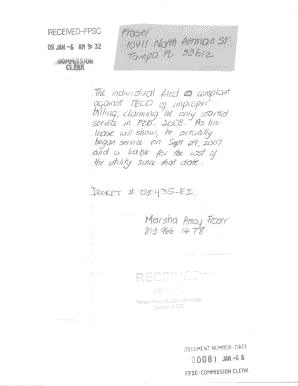 RECEIVED-FPSC
09 JAN -6 AM 9:32
COMMISSION
CLERK
Fraser
10411 North Altman St
Tampa FL 33612
The individual filed a complaint
against TECO of improper
billing, claiming he only started
service in Feb. 2008. As his
lease will show, he actually
began service on Sept 29, 2007
and is liable for the cost of
the utility since that date.
DOCKET #
Marsha Fraser
813 966 1478
RECEIVED
DOCUMENT NUMBER-DATE
00081 JAN-6
FPSC-COMMISSION CLERK